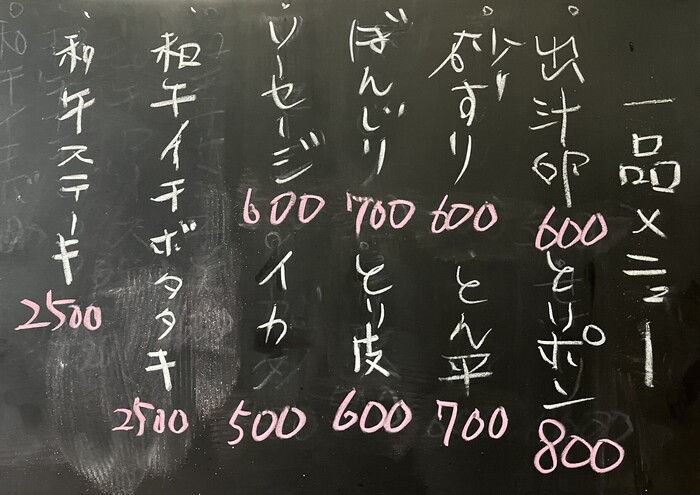 一品メニュー
出汁卵 600
とりポン 800
砂ずり 600
とん平 700
ぼんじり 700
とり皮 600
ソーセージ 600
イカ 500
和牛イチボタタキ 2500
和牛ステーキ 2500